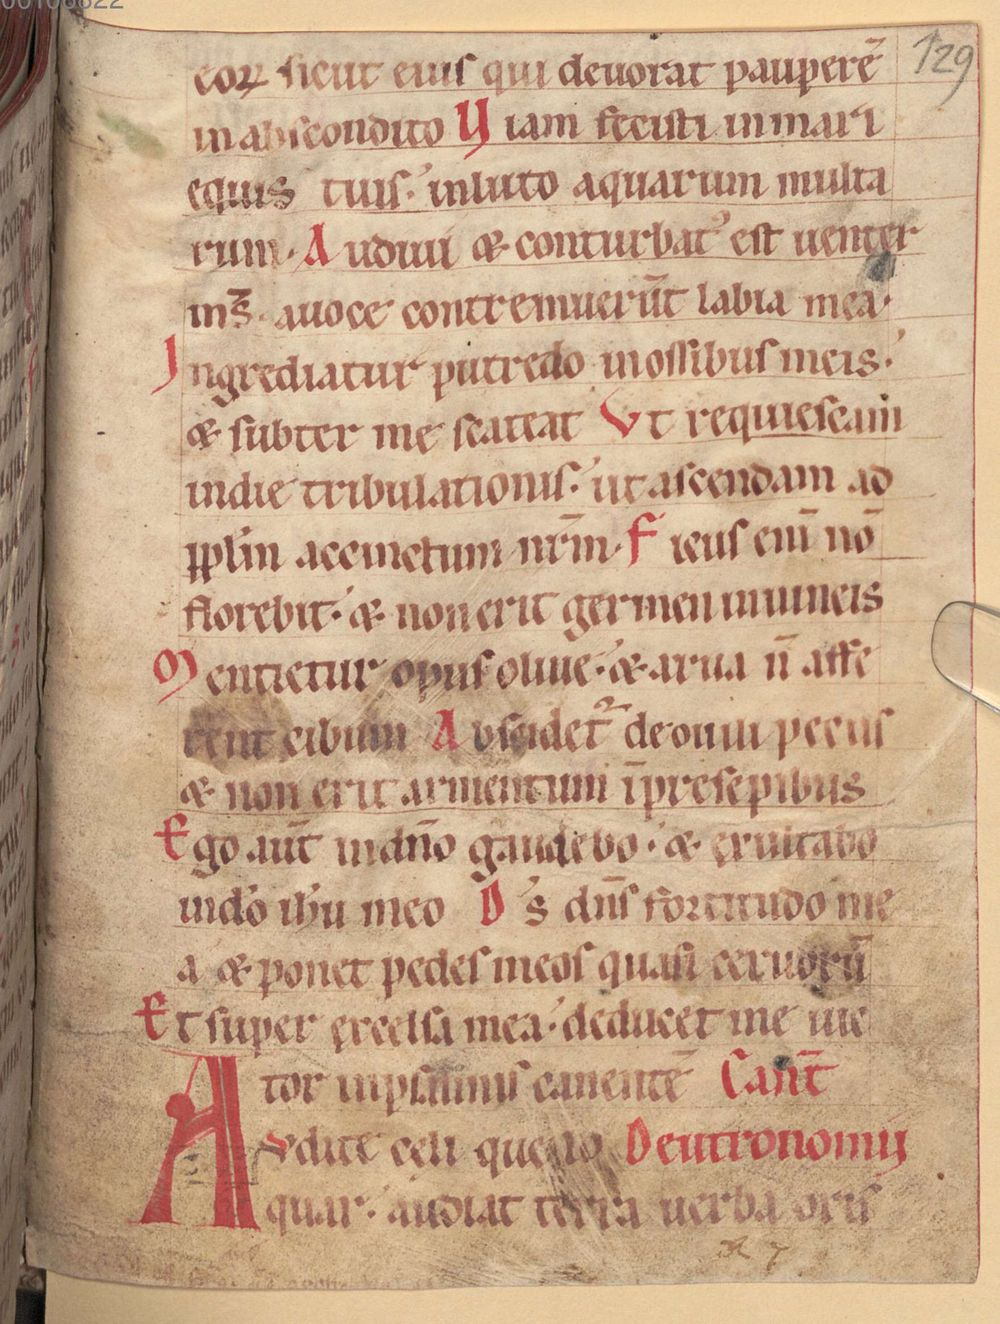 00106622
129
eoꝝ sicut eius qui deuorat pauperē
in abscondito Viam fecisti in mari
equis tuis· in luto aquarum multa
rum· Audiui & conturbat᷒ est uenter
ms̄· a uoce contremuerūt labia mea·
Ingrediatur putredo in ossibus meis·
& subter me scateat Vt requiescam
in die tribulationis· ut ascendam ad
pplm̄ accinctum nr̄m· Ficus eni̅ nō
florebit· & non erit germen in uineis
Mentietur opus oliue· & arua n̄ affe
rent cibum Abscidet᷑ de ouili pecus
& non erit armentum ī presepibus
Ego aut̄ in dn̄o gaudebo· & exultabo
in dō ihū meo Ds dn̄s fortitudo me
a & ponet pedes meos quasi ceruorū
Et super excelsa mea· deducet me uic
tor in psalmis canentē Cant̄
Audite celi que lo Deutronomij
quar· audiat terra uerba oris